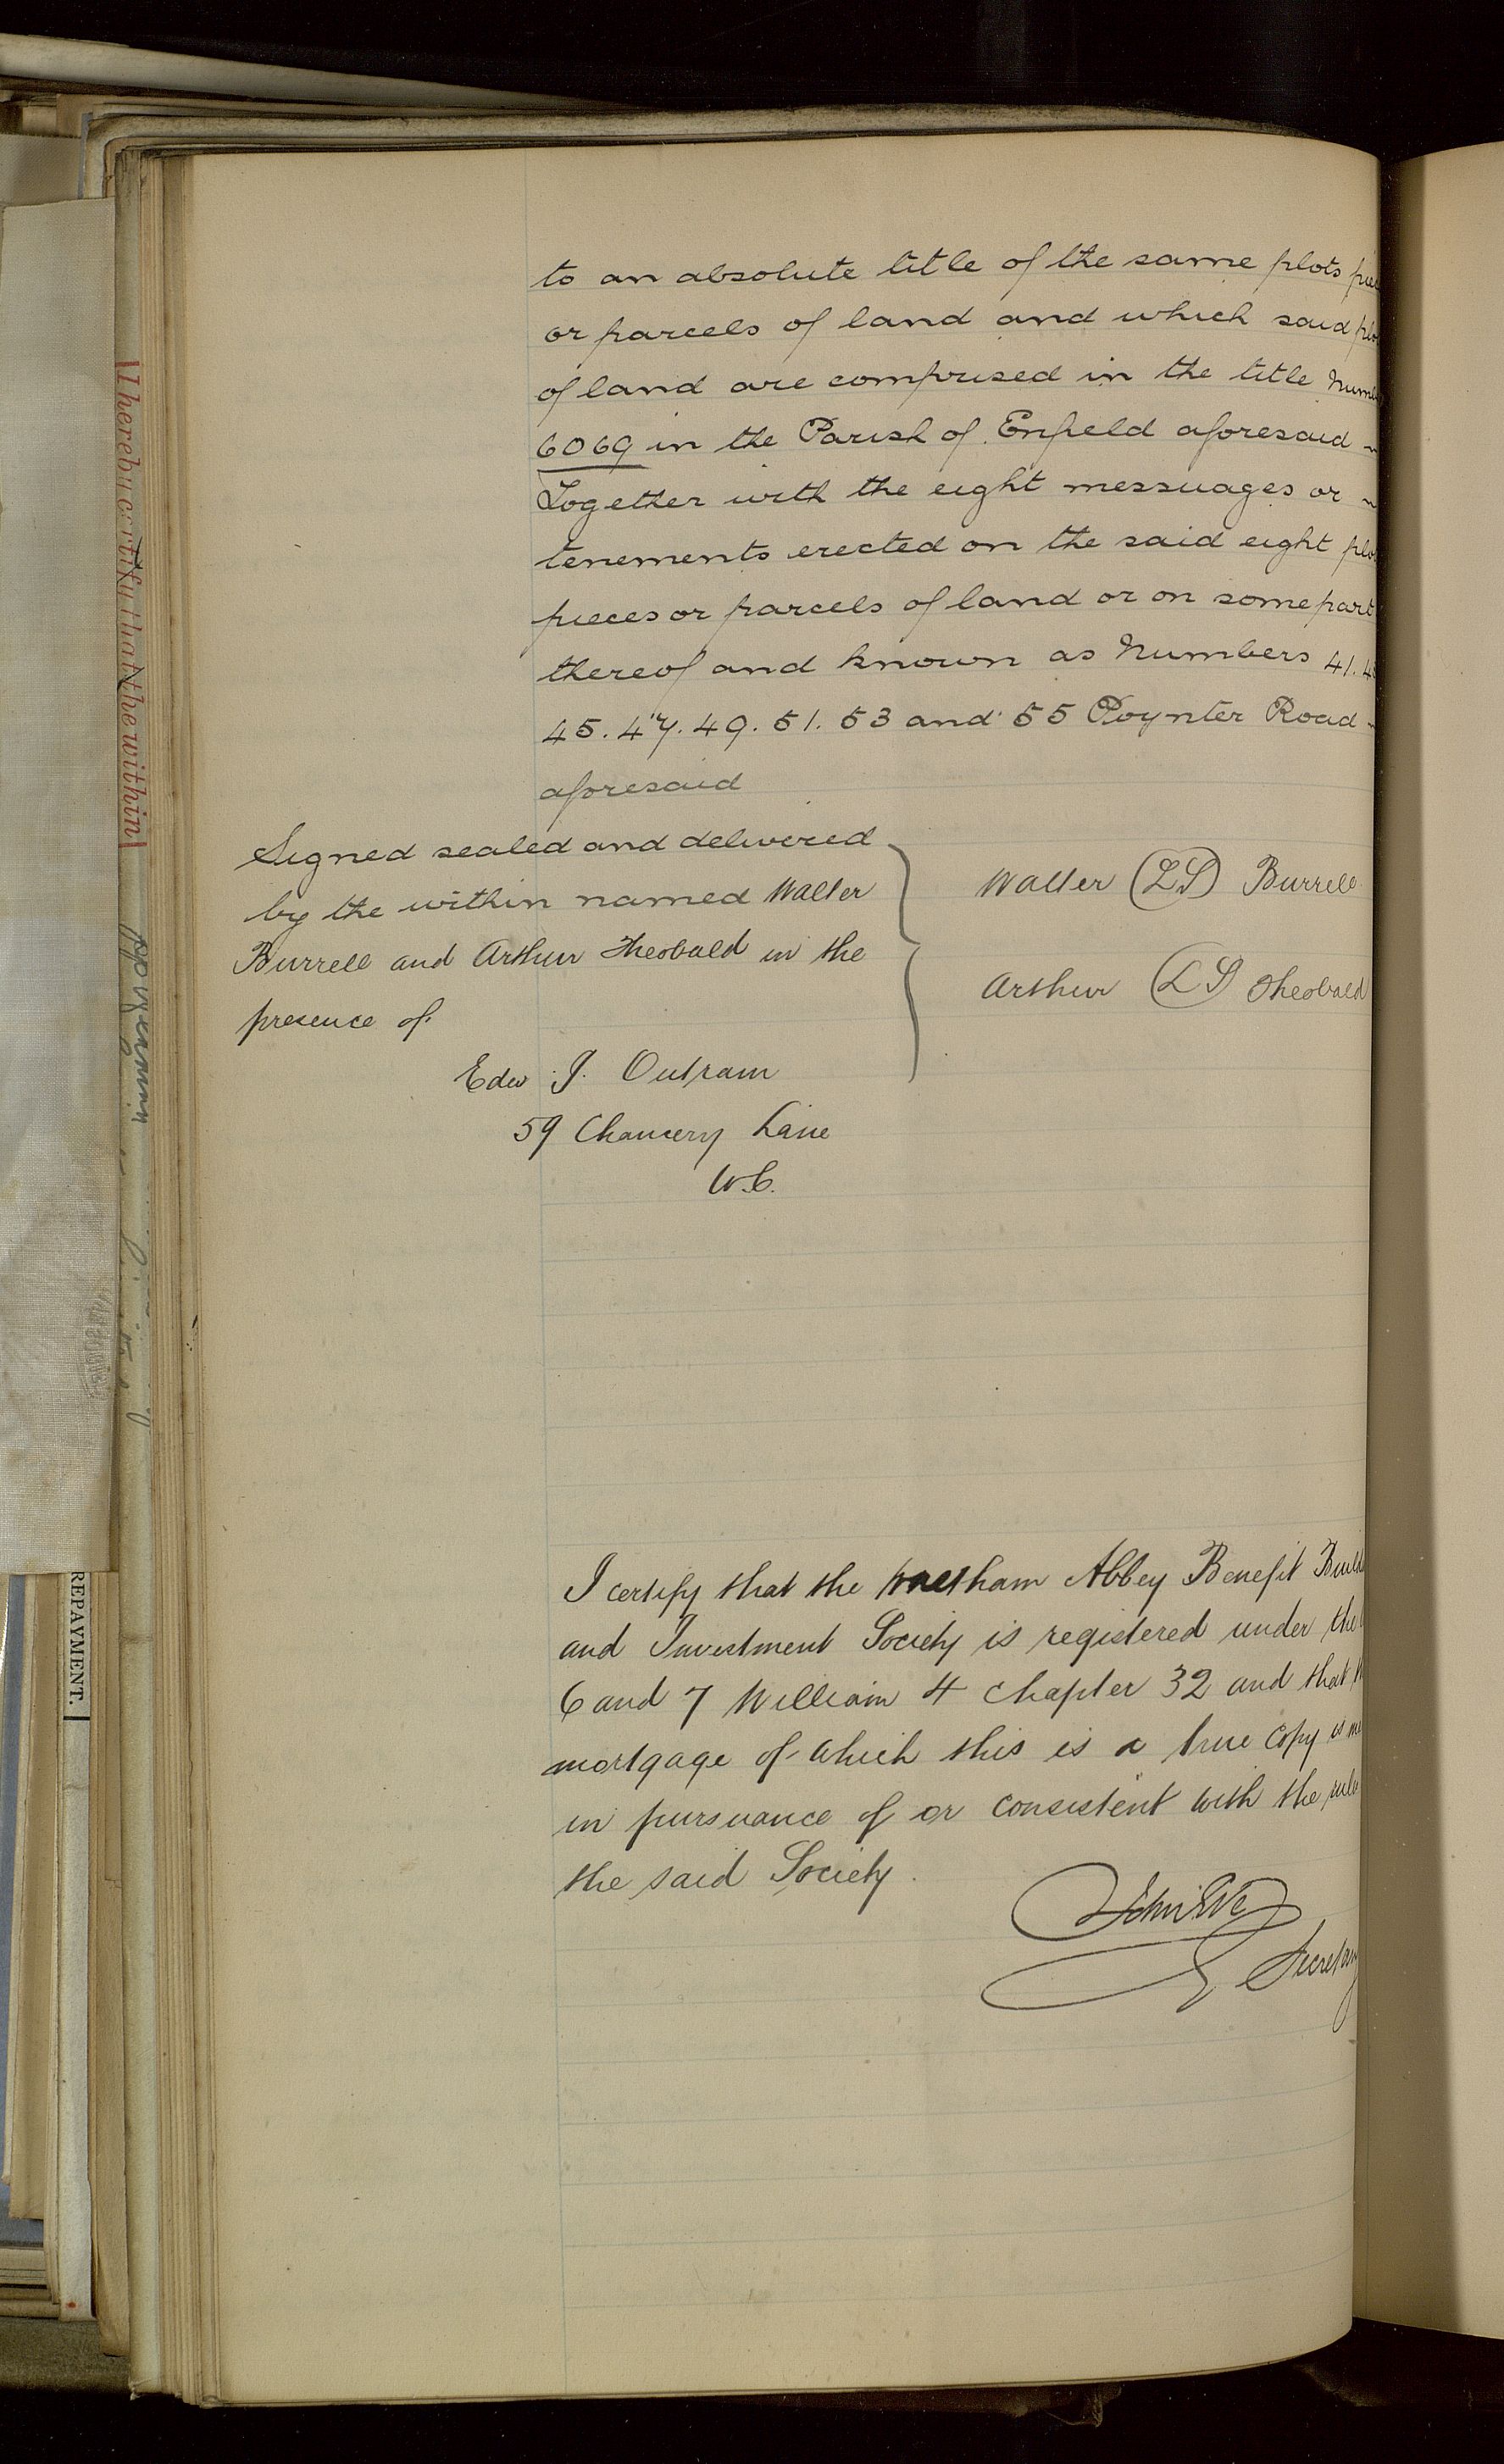 to an absolute title of the same plots
or parcels of land and which said
of land are comprised in the title
6069 in the Parish of Enfield aforesaid
Together with the eight messuages or
tenements erected on the said eight
pieces or parcels of land or on some part
thereof and known as Numbers 41.
45. 47. 49. 51. 53 and 55 Poynter Road
aforesaid
Signed sealed and delivered
by the within named Walter
Burrell and Arthur Theobald in the
presence of
Walter (LS) Burrell
Arthur (LS) Theobald
Edw J. Outram
59 Chancery Lane
W.C.
I certify that the Waltham Abbey Benefit
and Investment Society is registered under the
6 and 7 William 4 Chapter 32 and that
mortgage of which this is a true Copy is
in pursuance of or consistent with the
the said Society.
Secretary
I hereby certify that the within
REPAYMENT.